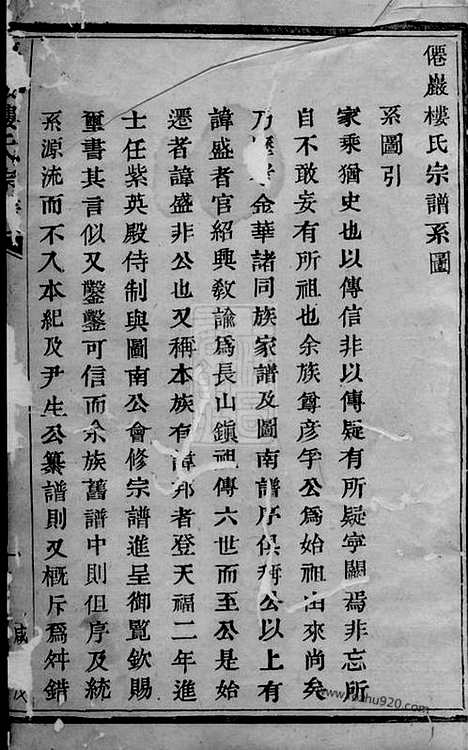 僊巖樓氏宗譜系圖
系圖引
家乘猶史也以傳信非以傳疑有所疑寧闕焉非忘所
自不敢妄有所祖也余族尊彦孚公為始祖由來尚矣
乃 金華諸同族家譜及圖南譜序俱稱公以上有
諱盛者官紹興敎諭為長山鎮祖傳六世而至公是始
遷者諱盛非公也又稱本族有諱邦者登天福二年進
士任紫英殿侍制與圖南公會修宗譜進呈御覧欽賜
璽書其言似又鑿鑿可信而余族舊譜中則但序及統
系源流而不入本紀及尹生公纂譜則又概斥為舛錯
樓氏宗譜
咸
www.jiapu920.com